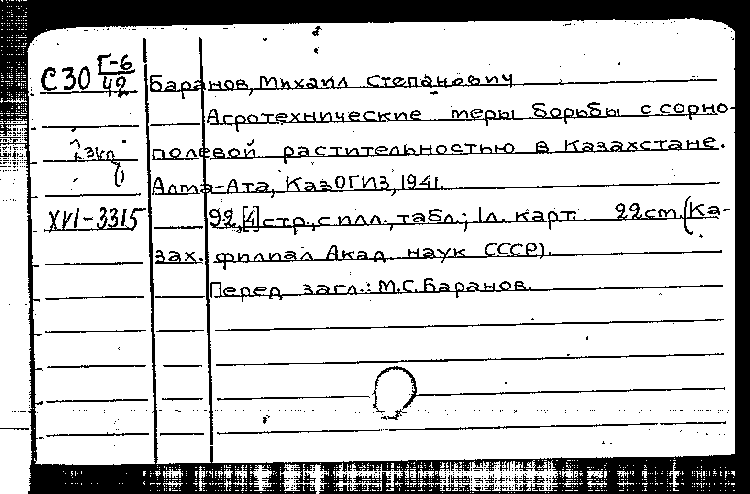 С30 Г-6/42
Баранов, Михаил Степанович
Агротехнические меры борьбы с сорно-
полевой растительностью в Казахстане.
Алма-Ата, КазОГИЗ, 1941.
XVI-3315
92,[4] стр., с илл., табл.; 1 л. карт. 22 cm. (Ка-
зах. филиал Акад. наук СССР).
Перед загл.: М.С. Баранов.